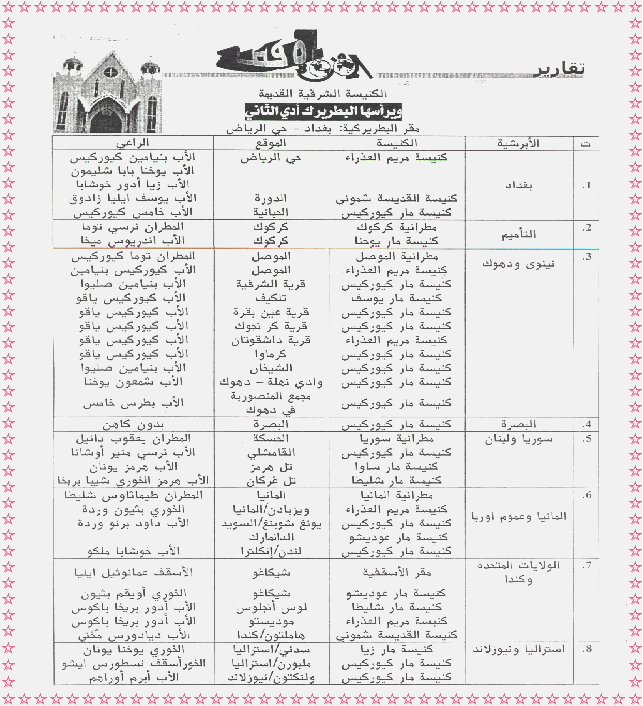 تقارير
الكنيسة الشرقية القديمة
ويرأسها البطريرك أدي الثاني
مقر البطريركية: بغداد - حي الرياض
ت الأبرشية الكنيسة الموقع الراعي
1. بغداد كنيسة مريم العذراء حي الرياض الأب بنيامين كيوركيس
الأب يوخنا بابا شليمون
الأب زيا أدور خوشابا
كنيسة القديسة شموني الدورة الأب يوسف ايليا زادوق
كنيسة مار كيوركيس الأب خامس كيوركيس
2. التأميم مطرانية كركوك كركوك المطران نرسي توما
كنيسة مار يوخنا كركوك الأب اندريوس ميخا
3. نينوى ودهوك مطرانية الموصل الموصل المطران توما كيوركيس
كنيسة مريم العذراء الموصل الأب كيوركيس بنيامين
كنيسة مار كيوركيس قرية الشرفية الأب بنيامين صليوا
كنيسة مار يوسف تلكيف الأب كيوركيس ياقو
كنيسة مار كيوركيس قرية عين بقرة الأب كيوركيس ياقو
كنيسة مار كيوركيس قرية كر نجوك الأب كيوركيس ياقو
كنيسة مريم العذراء قرية داشقوتان الأب كيوركيس ياقو
كنيسة مار كيوركيس كرماوا الأب كيوركيس ياقو
كنيسة مار كيوركيس الشيخان الأب بنيامين صليوا
كنيسة مار كيوركيس وادي نهلة – دهوك الأب شمعون يوخنا
كنيسة مار كيوركيس مجمع المنصورية في دهوك الأب بطرس خامس
4. البصرة كنيسة مار كيوركيس البصرة بدون كاهن
5. سوريا ولبنان مطرانية سوريا الحسكة المطران يعقوب دانيل
كنيسة مار كيوركيس القامشلي الأب نرسي منير أوشانا
كنيسة مار ساوا تل هرمز الأب هرمز يونان
كنيسة مار شليطا الأب هرمز الخوري شيبا بريخا
6. المانيا وعموم اوربا مطرانية المانيا المانيا المطران طيماثاوس شليطا
كنيسة مريم العذراء ويزبادن/المانيا الخوري بثيون وردة
كنيسة مار كيوركيس يونغ شوبنغ/السويد الأب داود برنو وردة
كنيسة مار عوديشو الدانمارك
كنيسة مار كيوركيس لندن/إنكلترا الأب خوشابا ملكو
7. الولايات المتحدة وكندا مقر الأسقفية شيكاغو الأسقف عمانوئيل ايليا
كنيسة مار عوديشو شيكاغو الخوري أويقم بثيون
كنيسة مار شليطا لوس أنجلوس الأب أدور بريخا باكوس
كنيسة مريم العذراء موديستو الأب أدور بريخا باكوس
كنيسة القديسة شموني هاملتون/كندا الأب ديادورس
8. استراليا ونيوزلاند كنيسة مار زيا سدني/استراليا الخوري يوخنا يونان
كنيسة مار كيوركيس ملبورن/استراليا الخورأسقف نسطورس ايشو
كنيسة مار كيوركيس ولنكتون/نيوزلاند الأب أبرم أوراهم